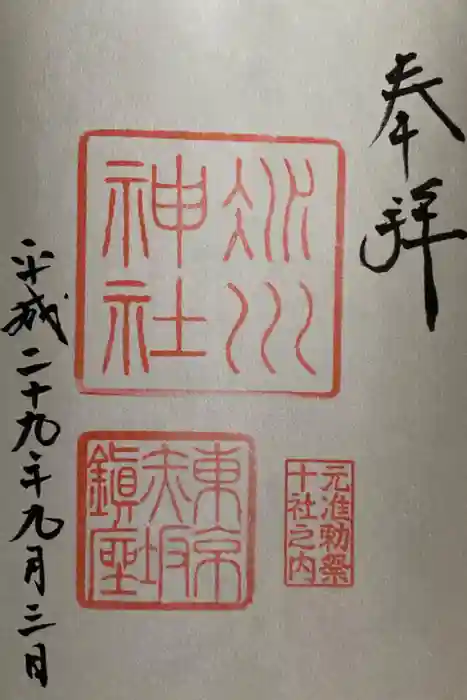 奉拝
氷川
神社
東京
赤坂
鎮座
元准勅祭
十社之内
平成二十九年九月三日